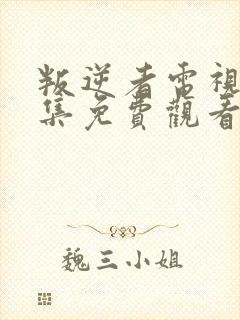 叛逆者電視
集免費觀看
魏三小姐